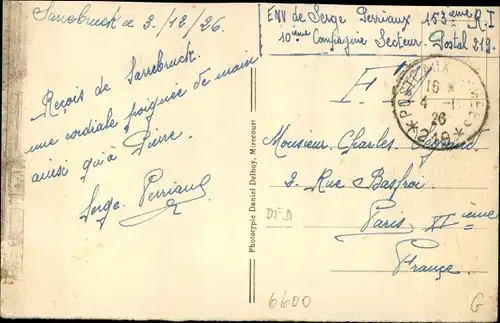 Sarrebruck ce 3/12/26.
Reçois de Sarrebruck
une cordiale poignée de main
ainsi qu'à Pierre
Serge Perriaux
ENV de Serge Perriaux 153ème R.I
10ème Compagnie Secteur Postal 219.
F.
POSTE AUX ARMEES
16
4 - 12
26
* 219 *
Monsieur Charles
3. Rue Basfroi
Paris XIème
France.
Phototypie Daniel Delboy, Mirecourt
6600
G